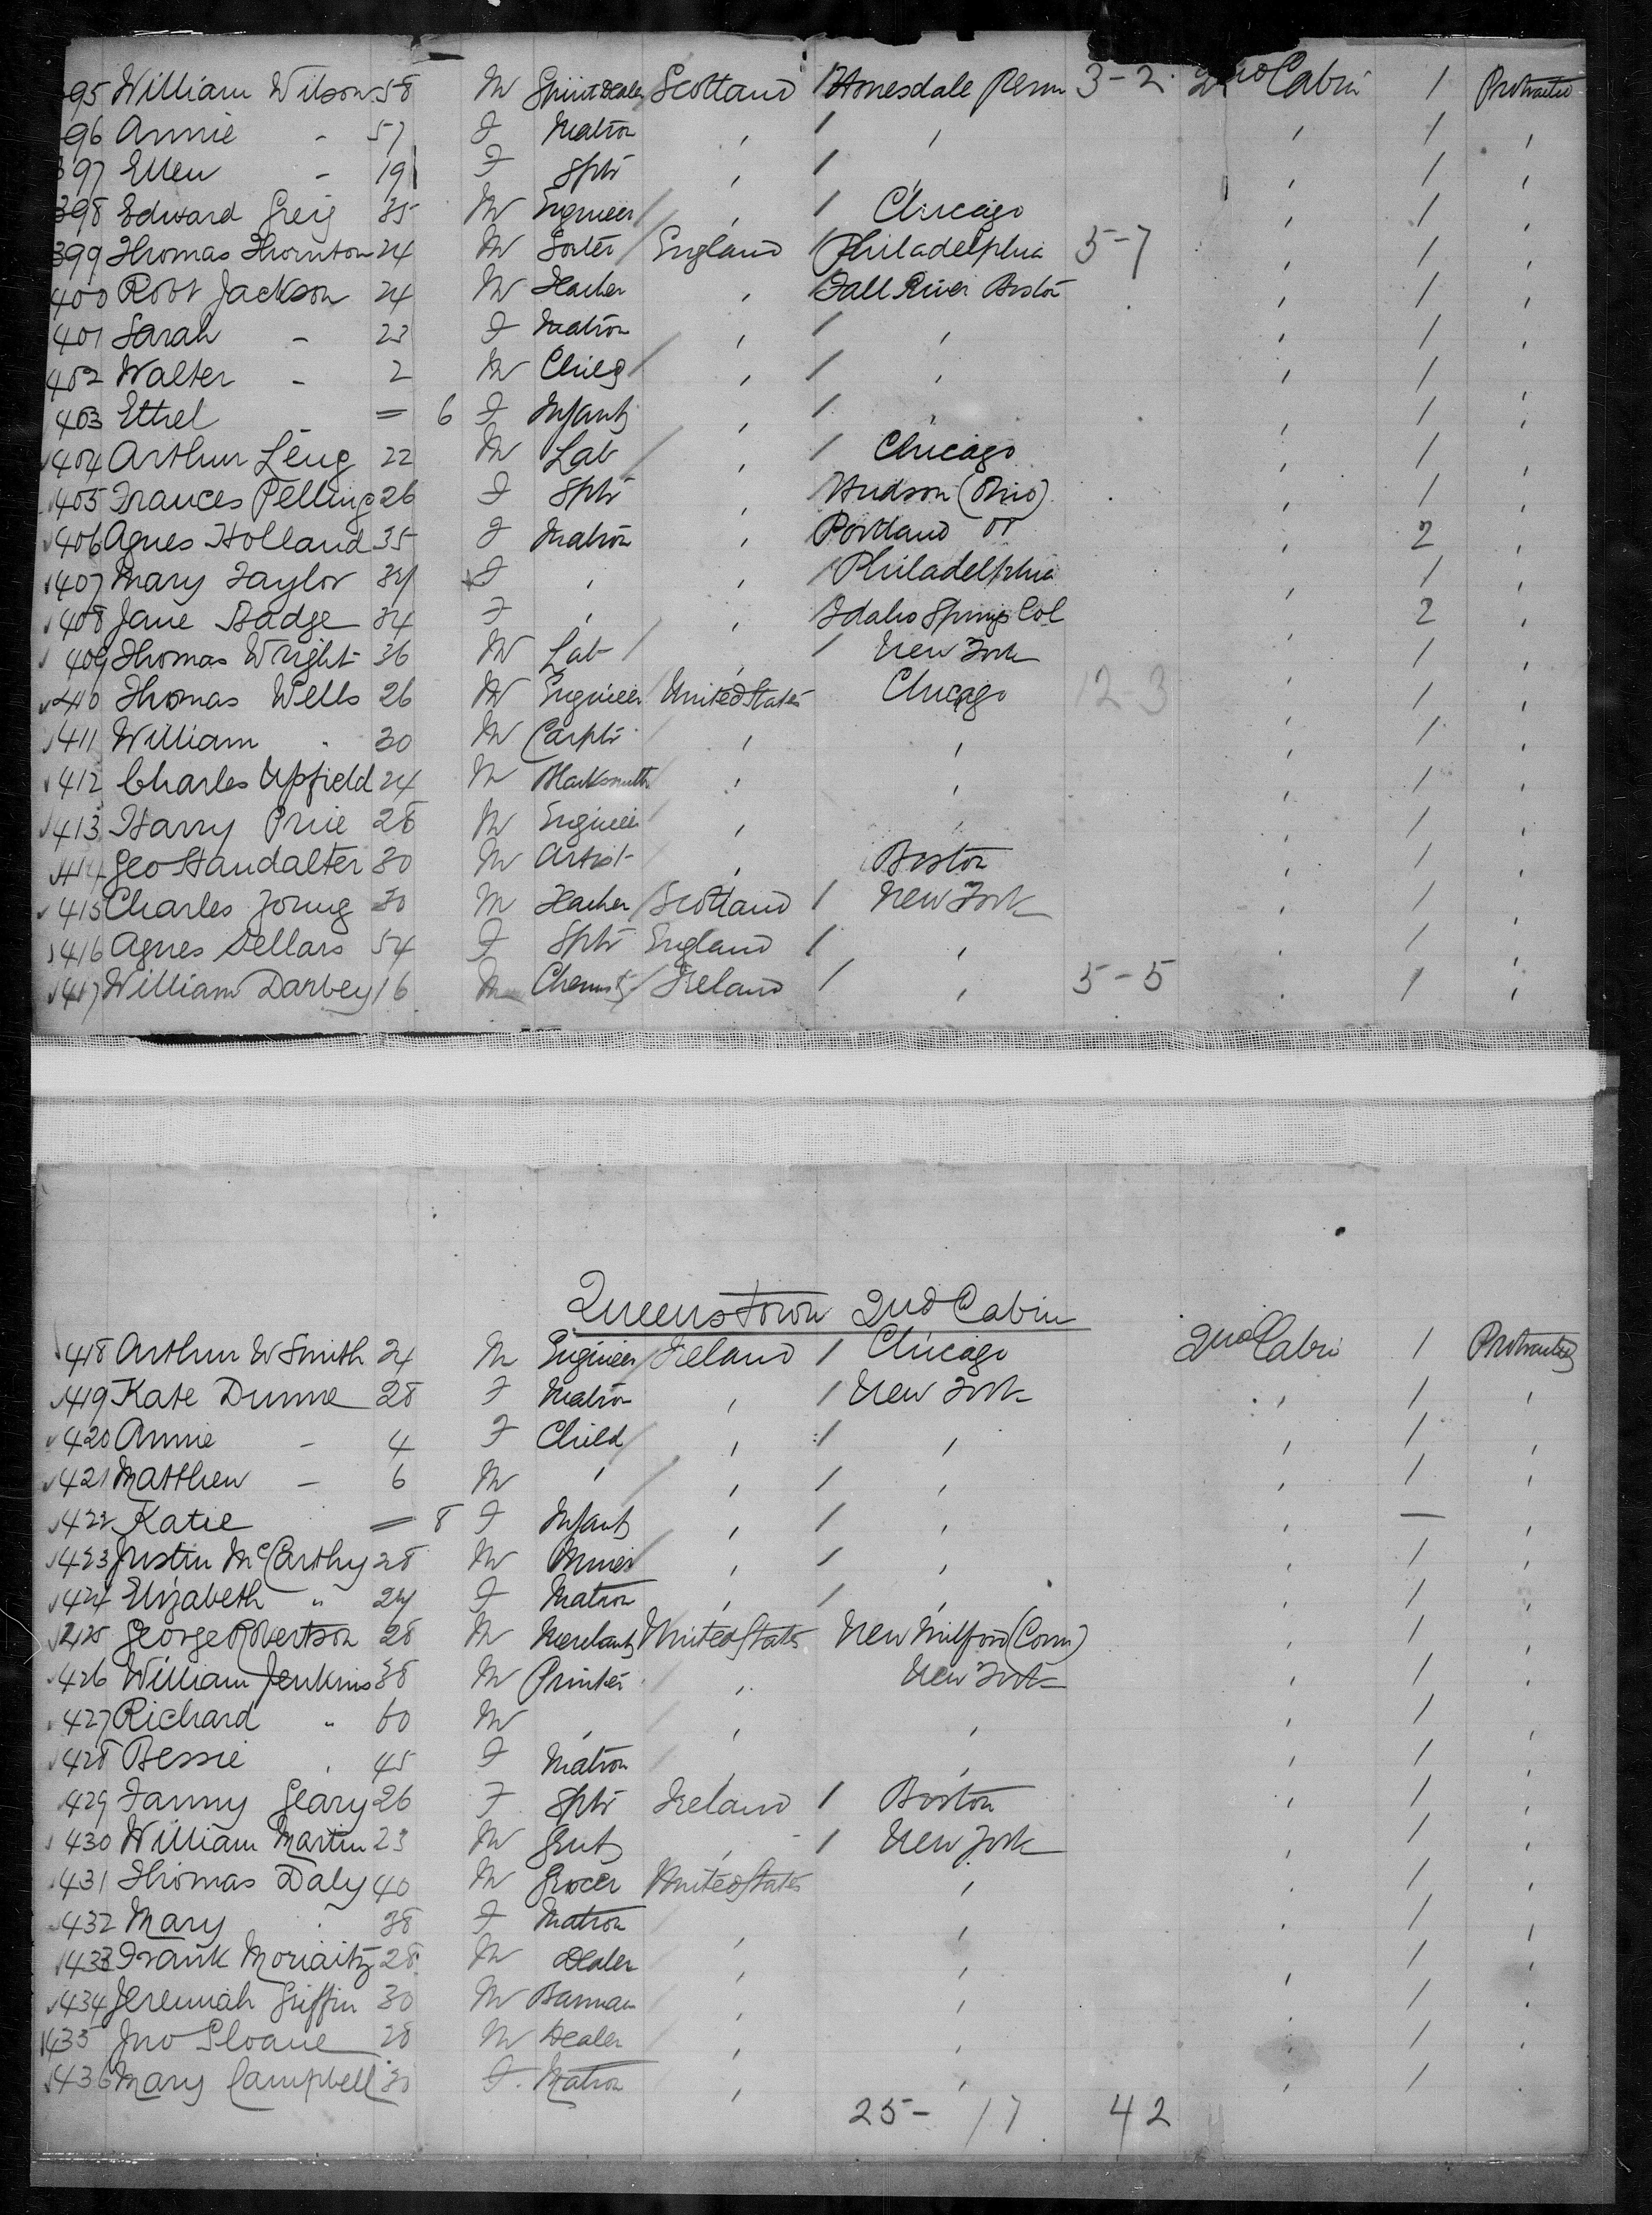 95 William Wilson 58 M Spirit dealer Scotland 1 Honesdale Penn 3-2 2nd Cabin 1 Protracted
96 Annie - 57 F Matron , 1 , , 1 ,
397 Ellen - 19 F Sptr , 1 , , 1 ,
398 Edward Greig 35 M Engineer , 1 Chicago , 1 ,
399 Thomas Thornton 24 M England 1 Philadelphia 5-7 , 1 ,
400 Robt Jackson 24 M , Fall River Boston , 1 ,
401 Sarah - 23 F Matron , 1 , , 1 ,
402 Walter - 2 M Child , 1 , , 1 ,
403 Ethel = 6 F Infant , 1 , , 1 ,
404 Arthur Leng 22 M Lab , 1 Chicago , 1 ,
405 Frances Pelling 26 F Sptr , Hudson (Ohio) , 1 ,
406 Agnes Holland 35 F Matron , Portland , 2 ,
407 Mary Taylor 34 F , , 1 Philadelphia , 1 ,
408 Jane Badge 34 F , , Idaho Springs Col , 2 ,
409 Thomas Wright 36 M Lab , 1 New York , 1 ,
410 Thomas Wells 26 M Engineer United States Chicago 12 3 , 1 ,
411 William " 30 M Carptr , , , 1 ,
412 Charles Upfield 24 M Blacksmith , , , 1 ,
413 Harry Price 28 M Engineer , , , 1 ,
414 Geo Handalter 30 M Artist , Boston , 1 ,
415 Charles Young 30 M Scotland 1 New York , 1 ,
416 Agnes Sellars 54 F Sptr England 1 , , 1 ,
417 William Darbey 16 M Chemist Ireland 1 , 5-5 , 1 ,
Queenstown 2nd Cabin
418 Arthur W Smith 24 M Engineer Ireland 1 Chicago 2nd Cabin 1 Protracted
419 Kate Dunne 28 F Matron , 1 New York , 1 ,
420 Annie - 4 F Child , 1 , , 1 ,
421 Matthew - 6 M , , 1 , , 1 ,
422 Katie = 8 F Infant , 1 , , — ,
423 Justin McCarthy 28 M Miner , 1 , , 1 ,
424 Elizabeth " 24 F Matron , 1 , , 1 ,
425 George Robertson 28 M Merchant United States New Milford (Conn) , 1 ,
426 William Jenkins 38 M Printer , New York , 1 ,
427 Richard " 60 M , , , , 1 ,
428 Bessie " 45 F Matron , , , 1 ,
429 Fanny Geary 26 F Sptr Ireland 1 Boston , 1 ,
430 William Martin 23 M Gent , 1 New York , 1 ,
431 Thomas Daly 40 M Grocer United States , , 1 ,
432 Mary " 38 F Matron , , , 1 ,
433 Frank Moriaity 28 M Dealer , , , 1 ,
434 Jeremiah Griffin 30 M Barman , , , 1 ,
435 Jno Sloane 28 M Dealer , , , 1 ,
436 Mary Campbell 30 F Matron , , , 1 ,
25- 17 42